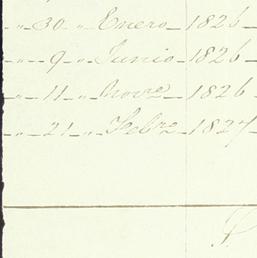 „ 30 „ Enero 1826
„ 9 „ Junio 1826
„ 11 „ Nov.re 1826
„ 21 „ Feb.ro 1827